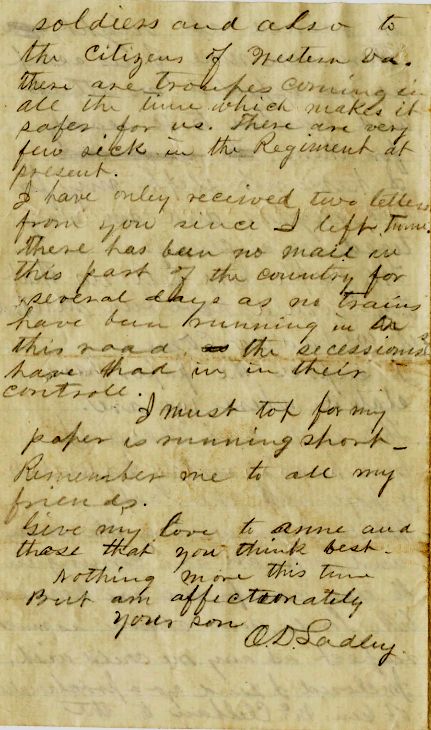 soldiers and also to
the Citizens of Western Va.
there are troupes coming in
all the time which makes it
safer for us. There are very
few sick in the Regiment at
present.
I have only recieved two letters
from you since I left.
there has been no mail in
this part of the country for
several days as no trains
have been running in
this road. the secessionists
have had in in their
controll.
I must top for my
paper is running short-
Remember me to all my
friends.
Give my love to anne and
those that you think best-
Nothing more this time
But am affectionately
your son
O.D. Ladley